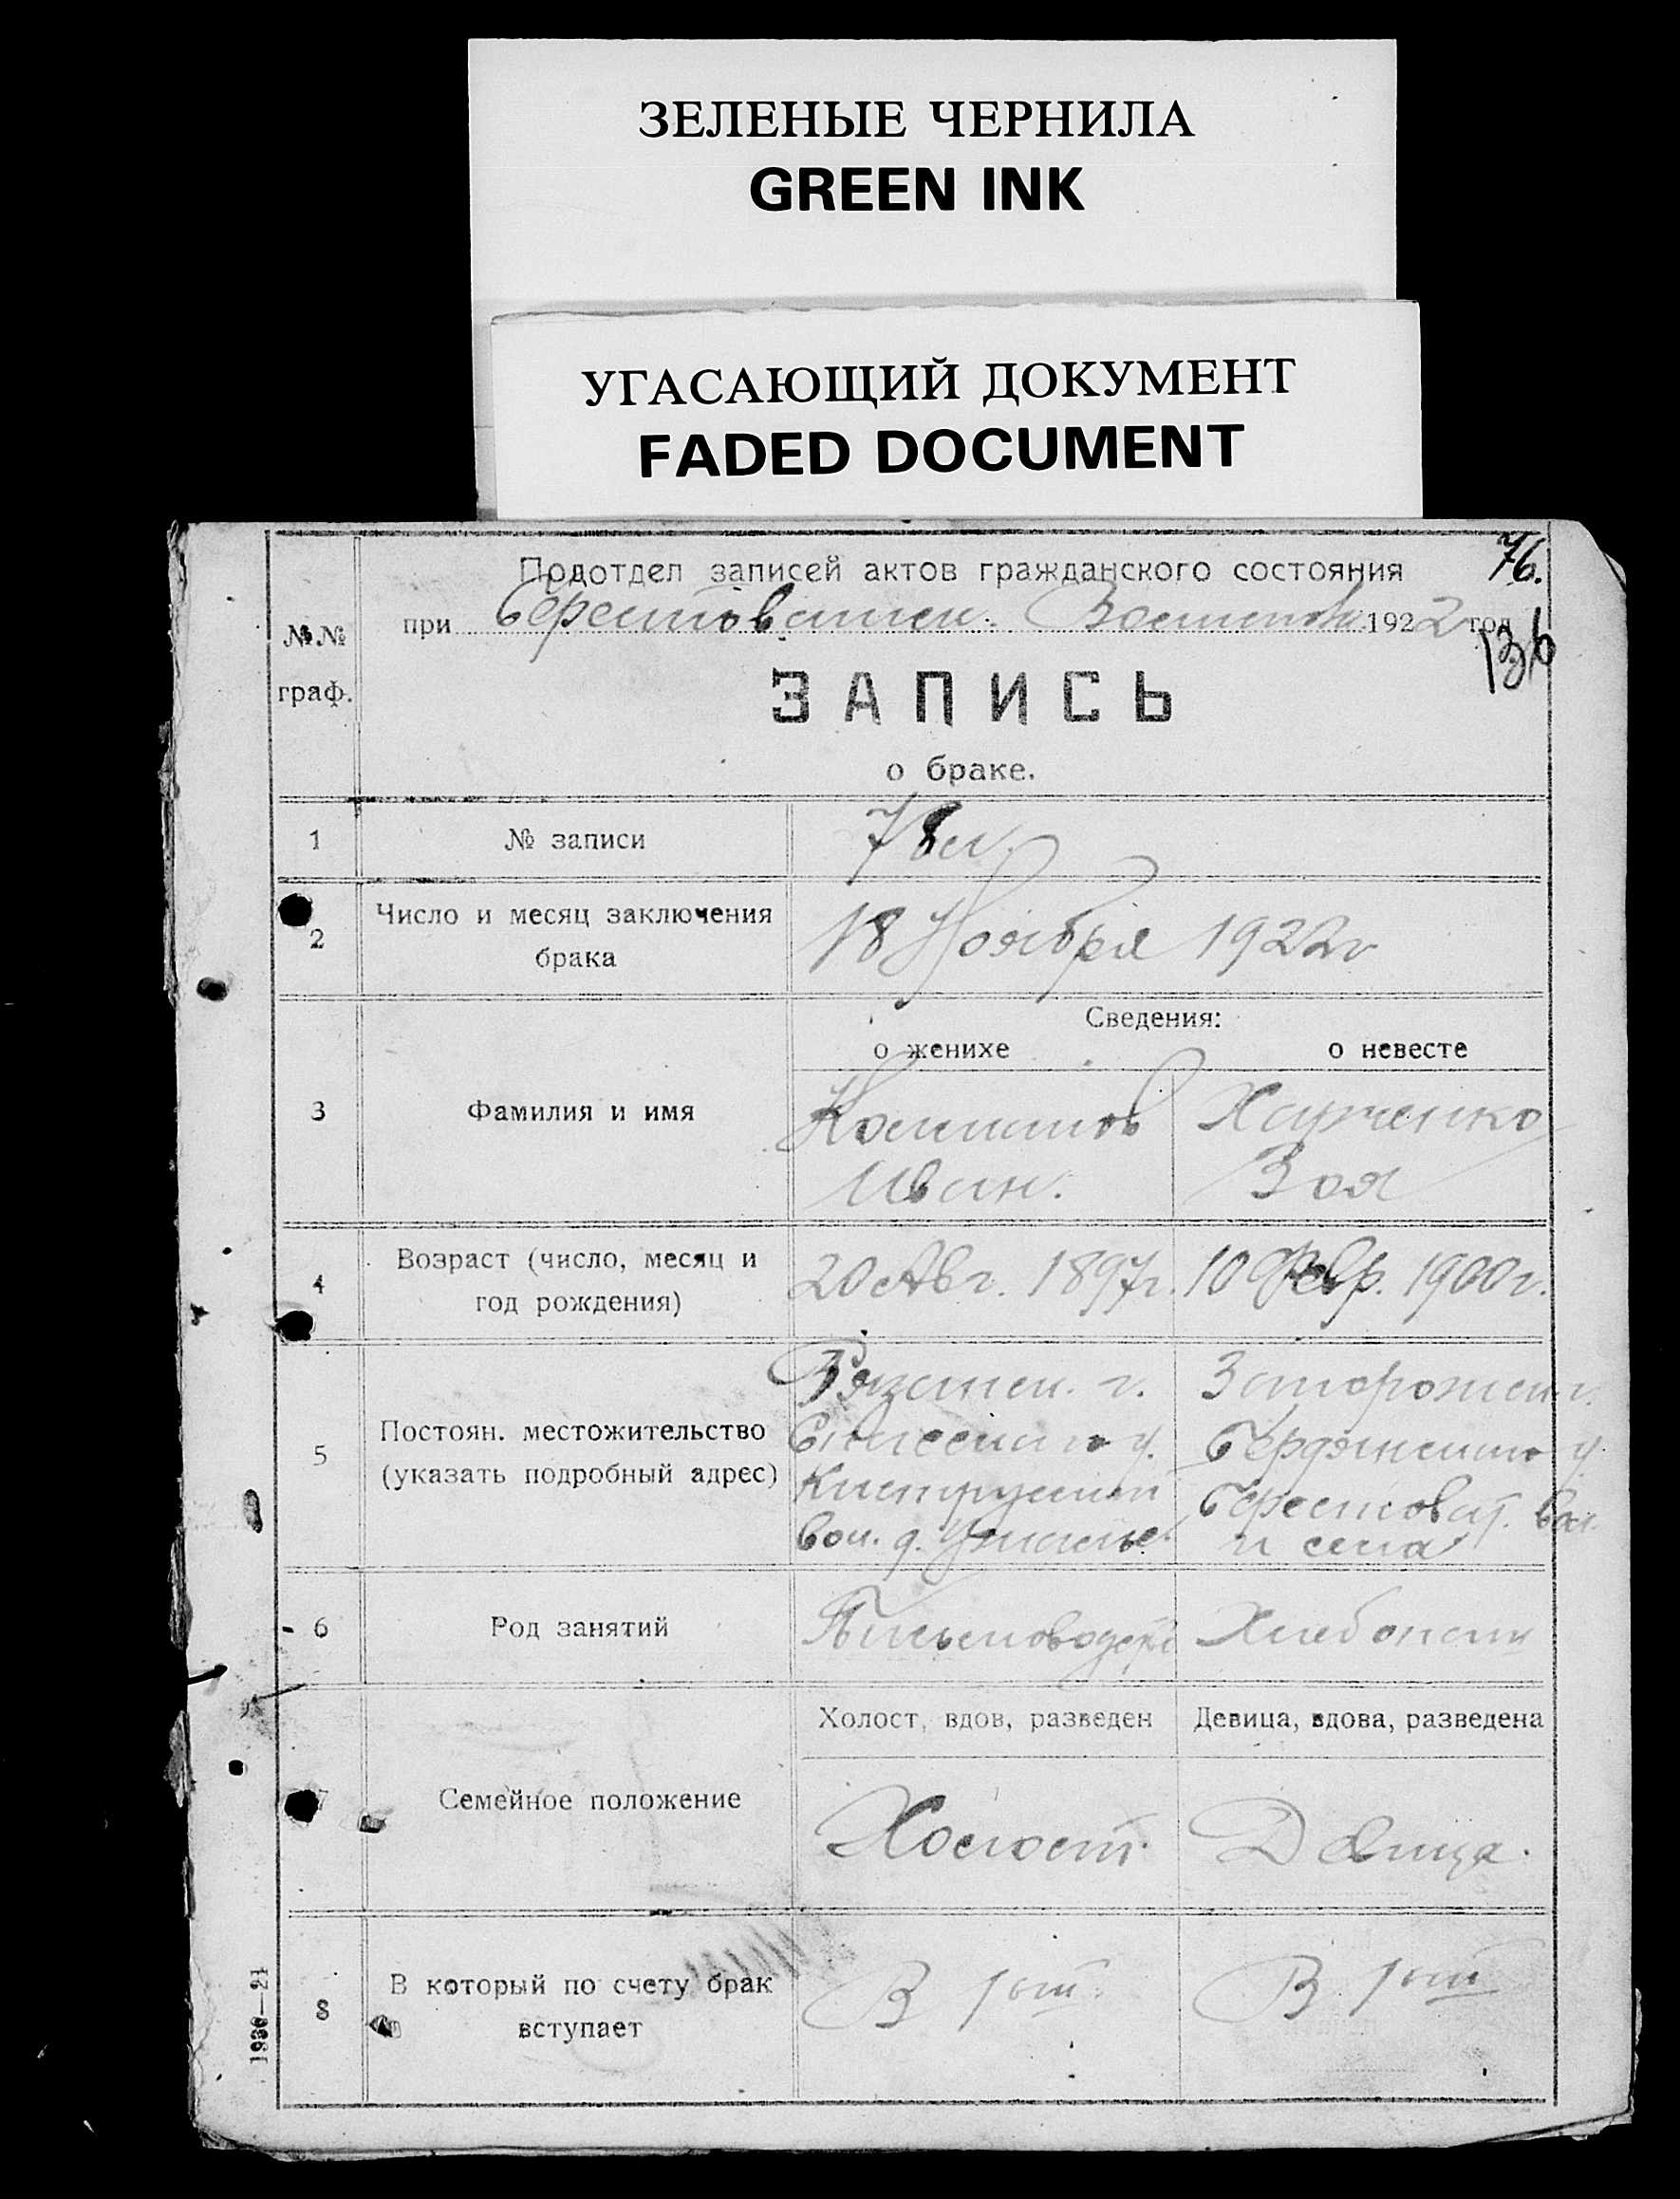 ЗЕЛЕНЫЕ ЧЕРНИЛА
GREEN INK
УГАСАЮЩИЙ ДОКУМЕНТ
FADED DOCUMENT
76.
Подотдел записей актов гражданского состояния
при Берестоватск. 1922 год
136
№№
граф.
ЗАПИСЬ
о браке.
1 № записи 78
2 Число и месяц заключения
брака
18 Ноября 1922г
Сведения:
о женихе о невесте
3 Фамилия и имя
Зоя
Иван.
4 Возраст (число, месяц и
год рождения)
20 Авг. 1897г. 10 Февр. 1900г.
5 Постоян. местожительство
(указать подробный адрес)
Рязанск. г. Запорожск. г.
Спасского у. Бердянского у.
Берестоват. вол.
вол. д. и села
6 Род занятий
Письмоводит. Хлебопаш
Холост, вдов, разведен Девица, вдова, разведена
7 Семейное положение
Холост. Девица.
8 В который по счету брак
вступает
В 1ый. В 1ый
1930—21